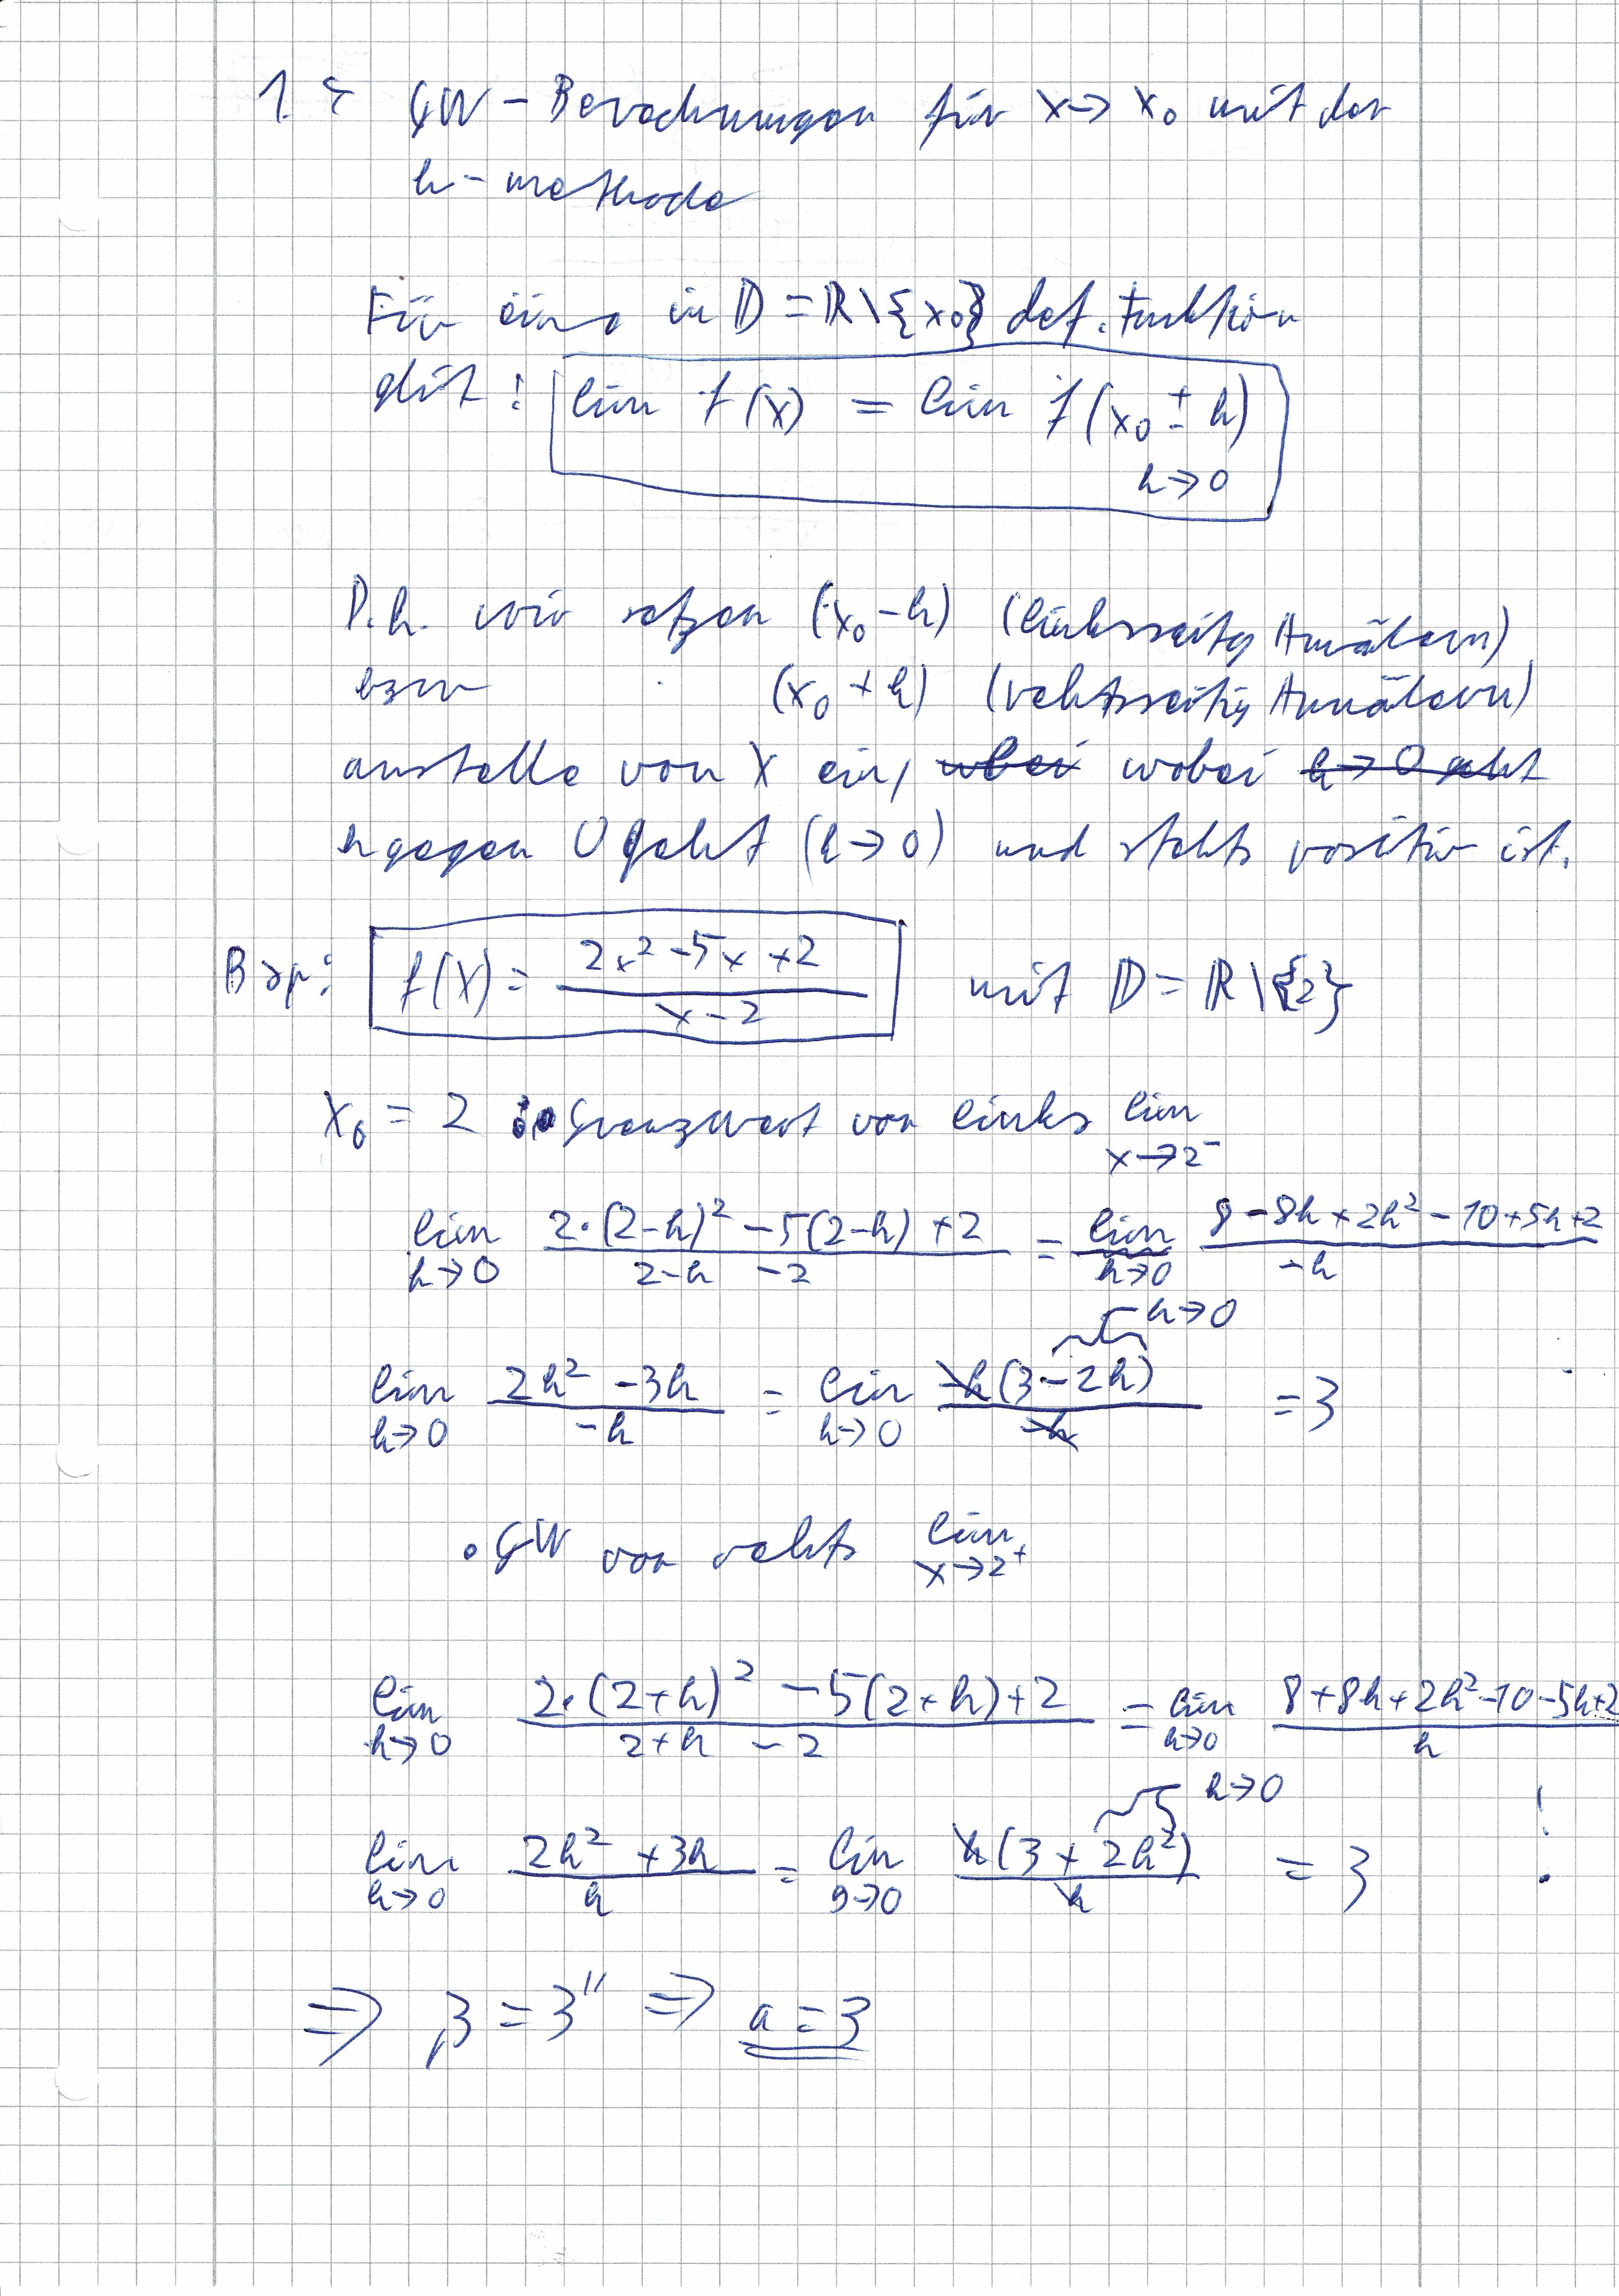 1. GW - Berechnungen für x → x₀ mit der
h - methode
Für eine in 𝔻 = ℝ \ {x₀} def. Funktion
gilt: lim f(x) = lim f(x₀ ± h)
h → 0
D.h. wir setzen (x₀ - h) (linksseitig Annähern)
bzw (x₀ + h) (rehtsseitig Annähern)
anstelle von x ein, wobei
h gegen 0 geht (h → 0) und stehts positiv ist.
Bsp: f(x) = (2x² - 5x + 2)/(x - 2) mit 𝔻 = ℝ \ {2}
x₀ = 2 • Grenzwert von links lim x → 2⁻
lim h → 0 (2·(2-h)² - 5(2-h) + 2)/(2-h - 2) = lim h → 0 (8 - 8h + 2h² - 10 + 5h + 2)/(-h)
h → 0
lim h → 0 (2h² - 3h)/(-h) = lim h → 0 (-h(3 - 2h))/(-h) = 3
• GW von rehts lim x → 2⁺
lim h → 0 (2·(2+h)² - 5(2+h) + 2)/(2+h - 2) = lim h → 0 (8 + 8h + 2h² - 10 - 5h + 2)/h
h → 0 !
lim h → 0 (2h² + 3h)/h = lim → 0 (h(3 + 2h²))/h = 3
⇒ 3 = 3" ⇒ a = 3